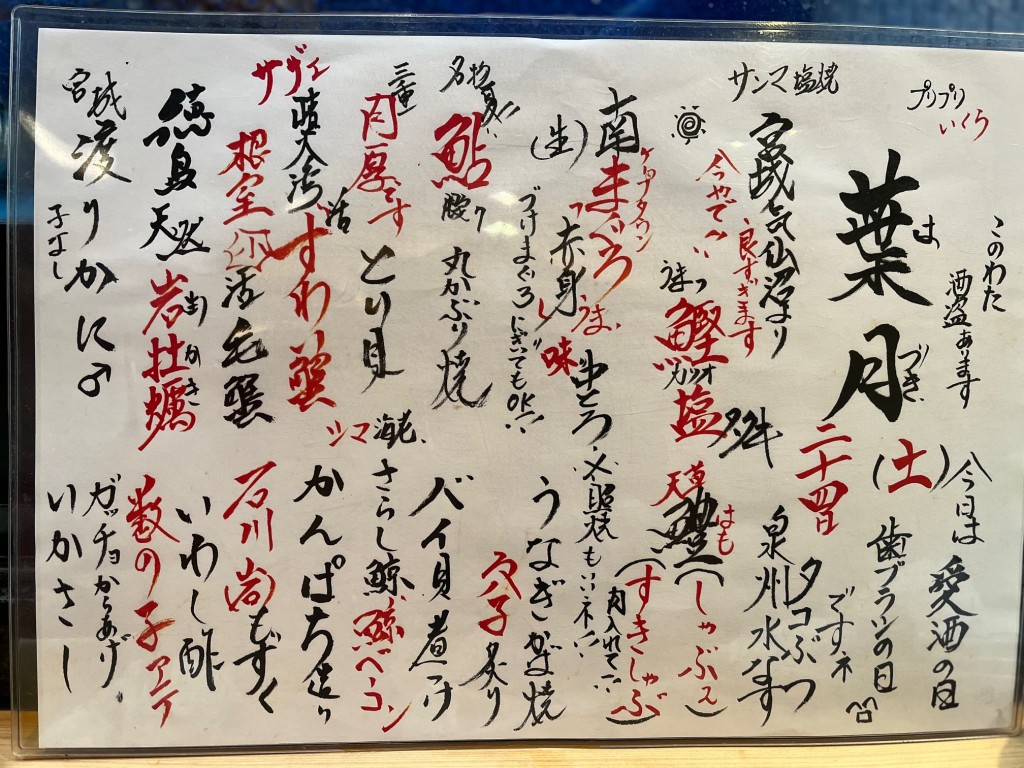 プリプリ
いくら
このわた
酒盗あります
葉月
はづき
二十四日
(土)
今日は
愛酒の日
歯ブラシの日
ですネ
サンマ塩焼
宮城気仙沼より
良すぎます
今やでぇ
うまっ
鰹
カツオ
塩
タタキ
タコぶつ
泉州水なす
天草
鱧
はも
(しゃぶス)
(すきしゃぶ)
肉入れて
南まぐろ
ケープタウン
(生)
赤身
うまい味
中とろ
〆照焼もいいネ
づけまぐろにぎいてもOK
うなぎかば焼
穴子炙り
名物
夏
鮎
腹り
丸かぶり焼
バイ貝煮つけ
三重
肉厚です
活とり貝
シマ海老
さらし鯨
鯨ベーコン
サヴィ
すわい蟹
かんぱち造り
根室
活毛蟹
石川
もずく
徳島天然
岩牡蠣
かき
いわし酢
数の子
宮城
渡りかに♂
子なし
ガッチョからあげ
いかさし